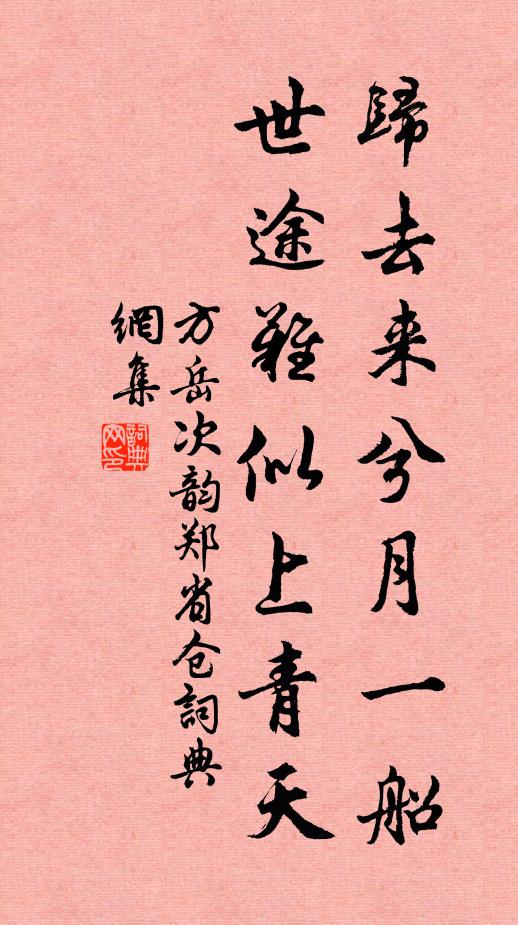 歸去来兮月一船
世途難似上青天
方岳次韵郑省仓詞典
網集
詞典网印